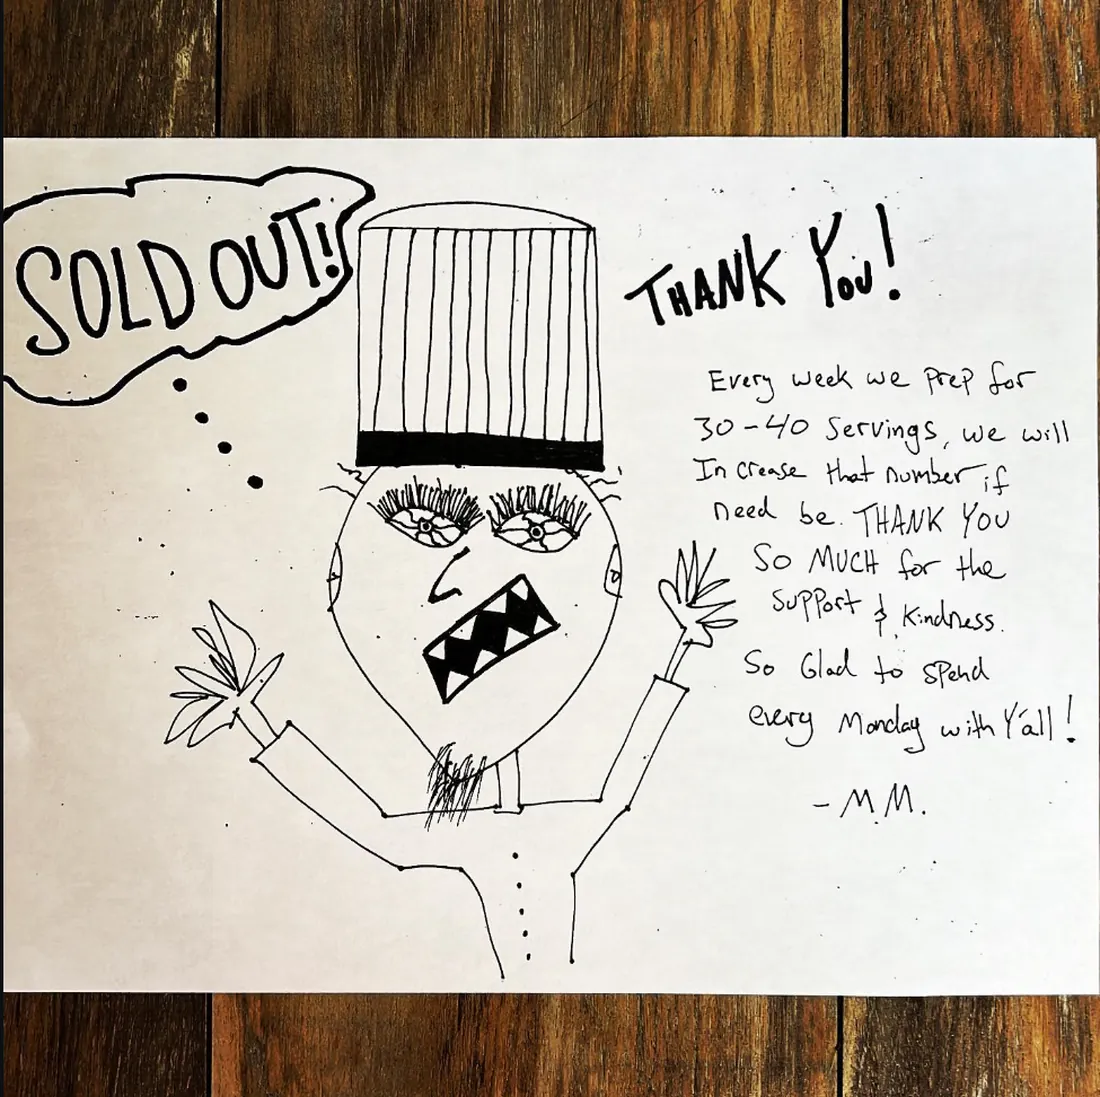 SOLD OUT!
THANK YOU!
Every week we prep for
30-40 Servings, we will
Increase that number if
need be. THANK YOU
SO MUCH for the
Support & Kindness.
So Glad to spend
every Monday with Y'all!
- M.M.